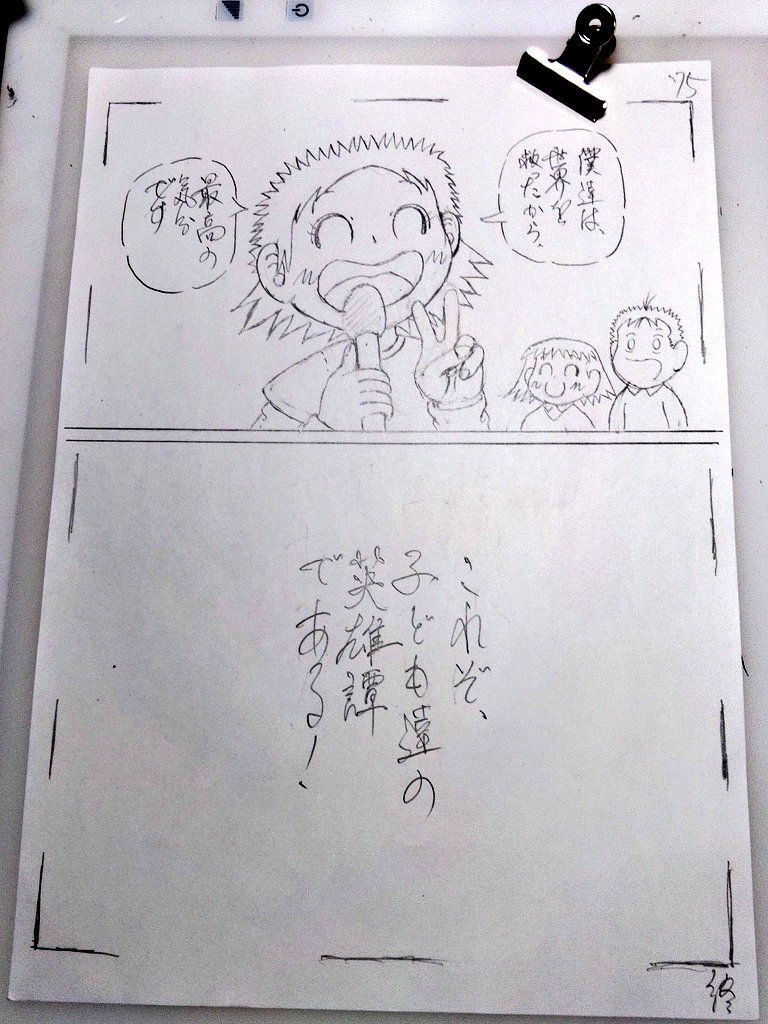 '75
僕達は、
世界を
救ったから、
最高の
気分
です
これぞ、
子ども達の
英雄譚
である！
終